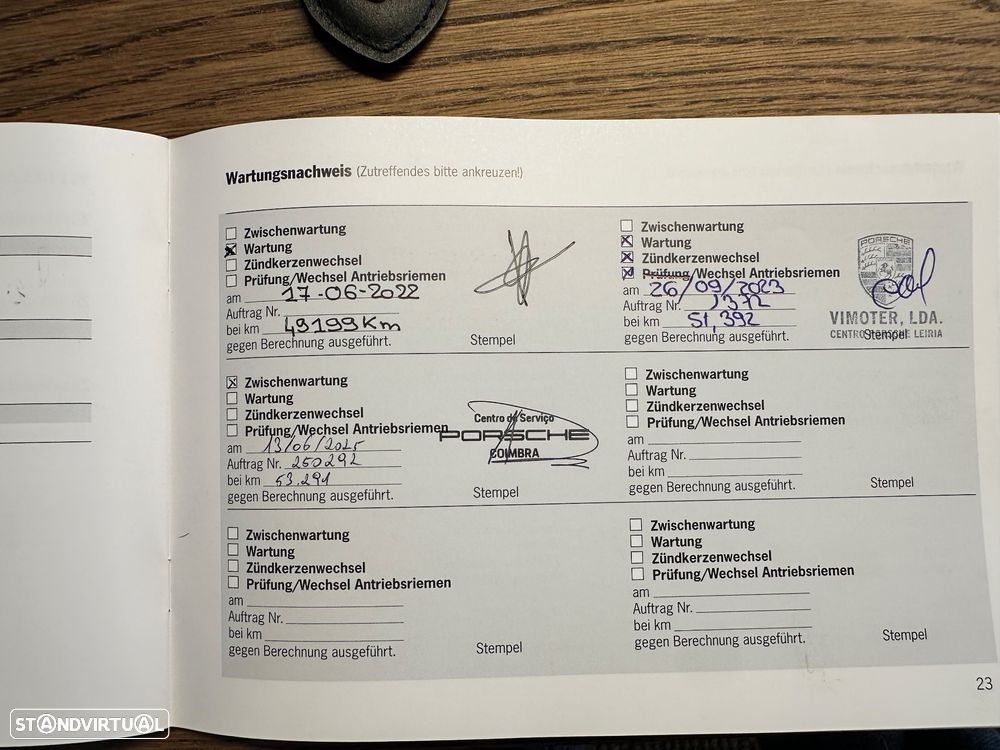 Wartungsnachweis (Zutreffendes bitte ankreuzen!)
Zwischenwartung
Wartung
Zündkerzenwechsel
Prüfung/Wechsel Antriebsriemen
am 17-06-2022
Auftrag Nr.
bei km 49199 Km
gegen Berechnung ausgeführt.
Stempel
Zwischenwartung
Wartung
Zündkerzenwechsel
Prüfung/Wechsel Antriebsriemen
am 26/09/2023
Auftrag Nr. 1372
bei km 51,392
gegen Berechnung ausgeführt.
PORSCHE
VIMOTER, LDA.
CENTRO PORSCHE LEIRIA
Stempel
Zwischenwartung
Wartung
Zündkerzenwechsel
Prüfung/Wechsel Antriebsriemen
am 13/06/2025
Auftrag Nr. 250292
bei km 53.291
gegen Berechnung ausgeführt.
Centro de Serviço
PORSCHE
COIMBRA
Stempel
Zwischenwartung
Wartung
Zündkerzenwechsel
Prüfung/Wechsel Antriebsriemen
am
Auftrag Nr.
bei km
gegen Berechnung ausgeführt.
Stempel
Zwischenwartung
Wartung
Zündkerzenwechsel
Prüfung/Wechsel Antriebsriemen
am
Auftrag Nr.
bei km
gegen Berechnung ausgeführt.
Stempel
Zwischenwartung
Wartung
Zündkerzenwechsel
Prüfung/Wechsel Antriebsriemen
am
Auftrag Nr.
bei km
gegen Berechnung ausgeführt.
Stempel
23
STANDVIRTUAL